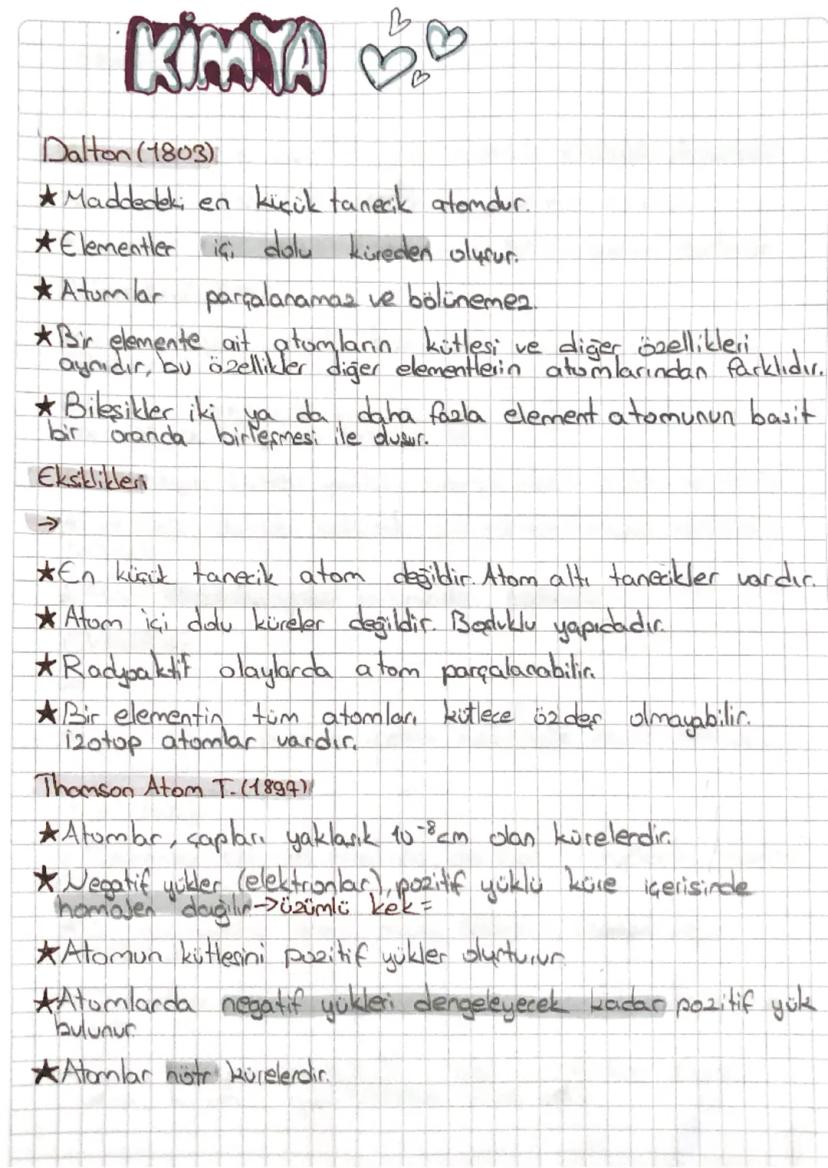 KİMYA
Dalton (1803)
★ Maddedeki en küçük tanecik atomdur.
★ Elementler içi dolu küreden oluşur.
★ Atomlar parçalanamaz ve bölünemez.
★ Bir elemente ait atomların kütlesi ve diğer özellikleri
aynıdır, bu özellikler diğer elementlerin atomlarından farklıdır.
★ Bileşikler iki ya da daha fazla element atomunun basit
bir oranda birleşmesi ile oluşur.
Eksiklikleri
→
★ En küçük tanecik atom değildir. Atom altı tanecikler vardır.
★ Atom içi dolu küreler değildir. Boşluklu yapıdadır.
★ Radyoaktif olaylarda atom parçalanabilir.
★ Bir elementin tüm atomları kütlece özdeş olmayabilir.
izotop atomlar vardır.
Thomson Atom T. (1897)
★ Atomlar, çapları yaklaşık 10⁻⁸ cm olan kürelerdir.
★ Negatif yükler (elektronlar), pozitif yüklü küre içerisinde
homojen dağılır → üzümlü kek =
★ Atomun kütlesini pozitif yükler oluşturur.
★ Atomlarda negatif yükleri dengeleyecek kadar pozitif yük
bulunur.
★ Atomlar nötr kürelerdir.